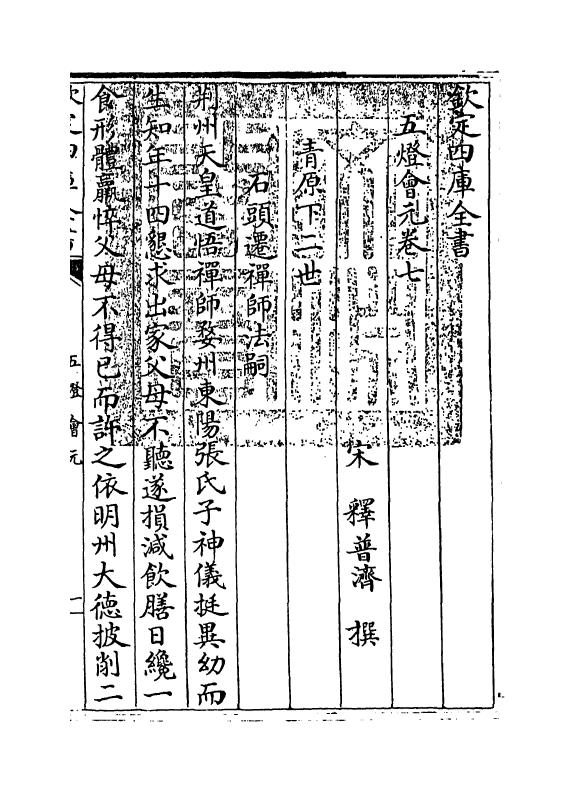 欽定四庫全書
五燈會元卷七
宋 釋普濟 撰
青原下二世
石頭遷禪師法嗣
荆州天皇道悟禪師婺州東陽張氏子神儀挺異幼而
生知年十四懇求出家父母不聽遂損減飲膳日纔一
食形體羸悴父母不得已而許之依明州大德披削二
五燈會元